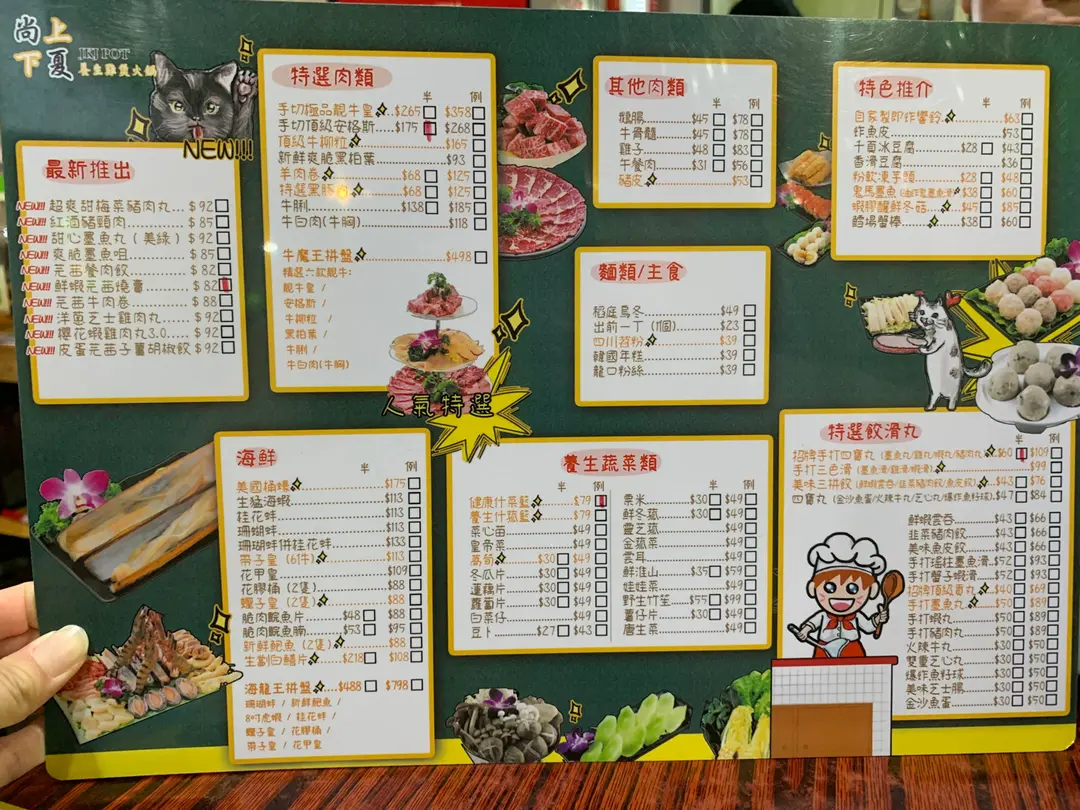 尚上
下夏
JKJ POT
養生雞煲火鍋
NEW!!!
最新推出
NEW!!! 超爽甜梅菜豬肉丸...$92
NEW!!! 紅酒豬頸肉...$85
NEW!!! 甜心墨魚丸(美綠) $92
NEW!!! 爽脆墨魚咀...$85
NEW!!! 芫茜餐肉餃...$82
NEW!!! 鮮蝦芫茜燒賣...$82
NEW!!! 芫茜牛肉卷...$88
NEW!!! 洋蔥芝士雞肉丸...$92
NEW!!! 櫻花蝦雞肉丸3.0...$92
NEW!!! 皮蛋芫茜子薑胡椒餃 $92
特選肉類
半 例
手切極品靚牛皇 $265 $358
手切頂級安格斯...$175 $268
頂級牛柳粒 $165
新鮮爽脆黑柏葉...$93
羊肉卷 $68 $125
特選黑豚 $68 $125
牛脷...$138 $185
牛白肉(牛胸)...$118
牛魔王拼盤...$498
精選六款靚牛:
靚牛皇 /
安格斯 /
牛柳粒 /
黑柏葉 /
牛脷 /
牛白肉(牛胸)
人氣特選
其他肉類
半 例
鵝腸...$45 $78
牛骨髓...$45 $78
雞子...$48 $83
午餐肉...$31 $56
豬皮...$53
特色推介
半 例
自家製即炸響鈴...$63
炸魚皮...$53
千頁冰豆腐...$28 $43
香滑豆腐...$36
粉飲凍芋頭...$28 $48
鬼馬墨魚(即炸鬼墨魚滑) $38 $60
蝦膠釀鮮冬菇...$45 $85
鱈場蟹棒...$38 $60
麵類/主食
稻庭烏冬...$49
出前一丁(1個)...$23
四川苕粉...$39
韓國年糕...$39
龍口粉絲...$39
海鮮
半 例
美國桶蠔...$175
生猛海蝦...$113
桂花蚌...$113
珊瑚蚌...$113
珊瑚蚌併桂花蚌...$133
帶子皇(6件)...$113
花甲皇...$109
花膠桶(2隻)...$88
蟶子皇(2隻)...$88
脆肉鯇魚片...$48 $88
脆肉鯇魚腩...$53 $95
新鮮鮑魚(2隻)...$88
生劏白鱔片...$218 $108
海龍王拼盤...$488 $798
珊瑚蚌 / 新鮮鮑魚 /
8吋虎蝦 / 桂花蚌 /
蟶子皇 / 花膠桶 /
帶子皇 / 花甲皇
養生蔬菜類
半 例 半 例
健康什菜籃...$79
養生什菇籃...$79
菜心苗...$49
皇帝菜...$49
萵筍...$30 $49
冬瓜片...$30 $49
蓮藕片...$30 $49
蘿蔔片...$30 $49
白菜仔...$49
豆卜...$27 $43
粟米...$30 $49
鮮冬菇...$30 $49
靈芝菇...$49
金菇菜...$49
雲耳...$49
鮮淮山...$35 $59
娃娃菜...$49
野生竹笙...$55 $99
薯仔片...$30 $49
唐生菜...$49
特選餃滑丸
半 例
招牌手打四寶丸(墨魚丸/雞丸/蝦丸/豬肉丸) $60 $109
手打三色滑(墨魚滑/雞滑/蝦滑)...$99
美味三拼餃(鮮蝦雲吞/韮菜豬肉餃/魚皮餃)...$43 $76
四寶丸(金沙魚蛋/火辣牛丸/芝心丸/爆炸魚籽球)...$47 $84
鮮蝦雲吞...$43 $66
韮菜豬肉餃...$43 $66
美味魚皮餃...$43 $66
手打瑤柱墨魚滑...$52 $93
手打蟹子蝦滑...$52 $93
招牌頂級貢丸...$40 $69
手打墨魚丸...$50 $89
手打蝦丸...$50 $89
手打豬肉丸...$50 $89
火辣牛丸...$30 $50
雙重芝心丸...$30 $50
爆炸魚籽球...$30 $50
美味芝士腸...$30 $50
金沙魚蛋...$30 $50